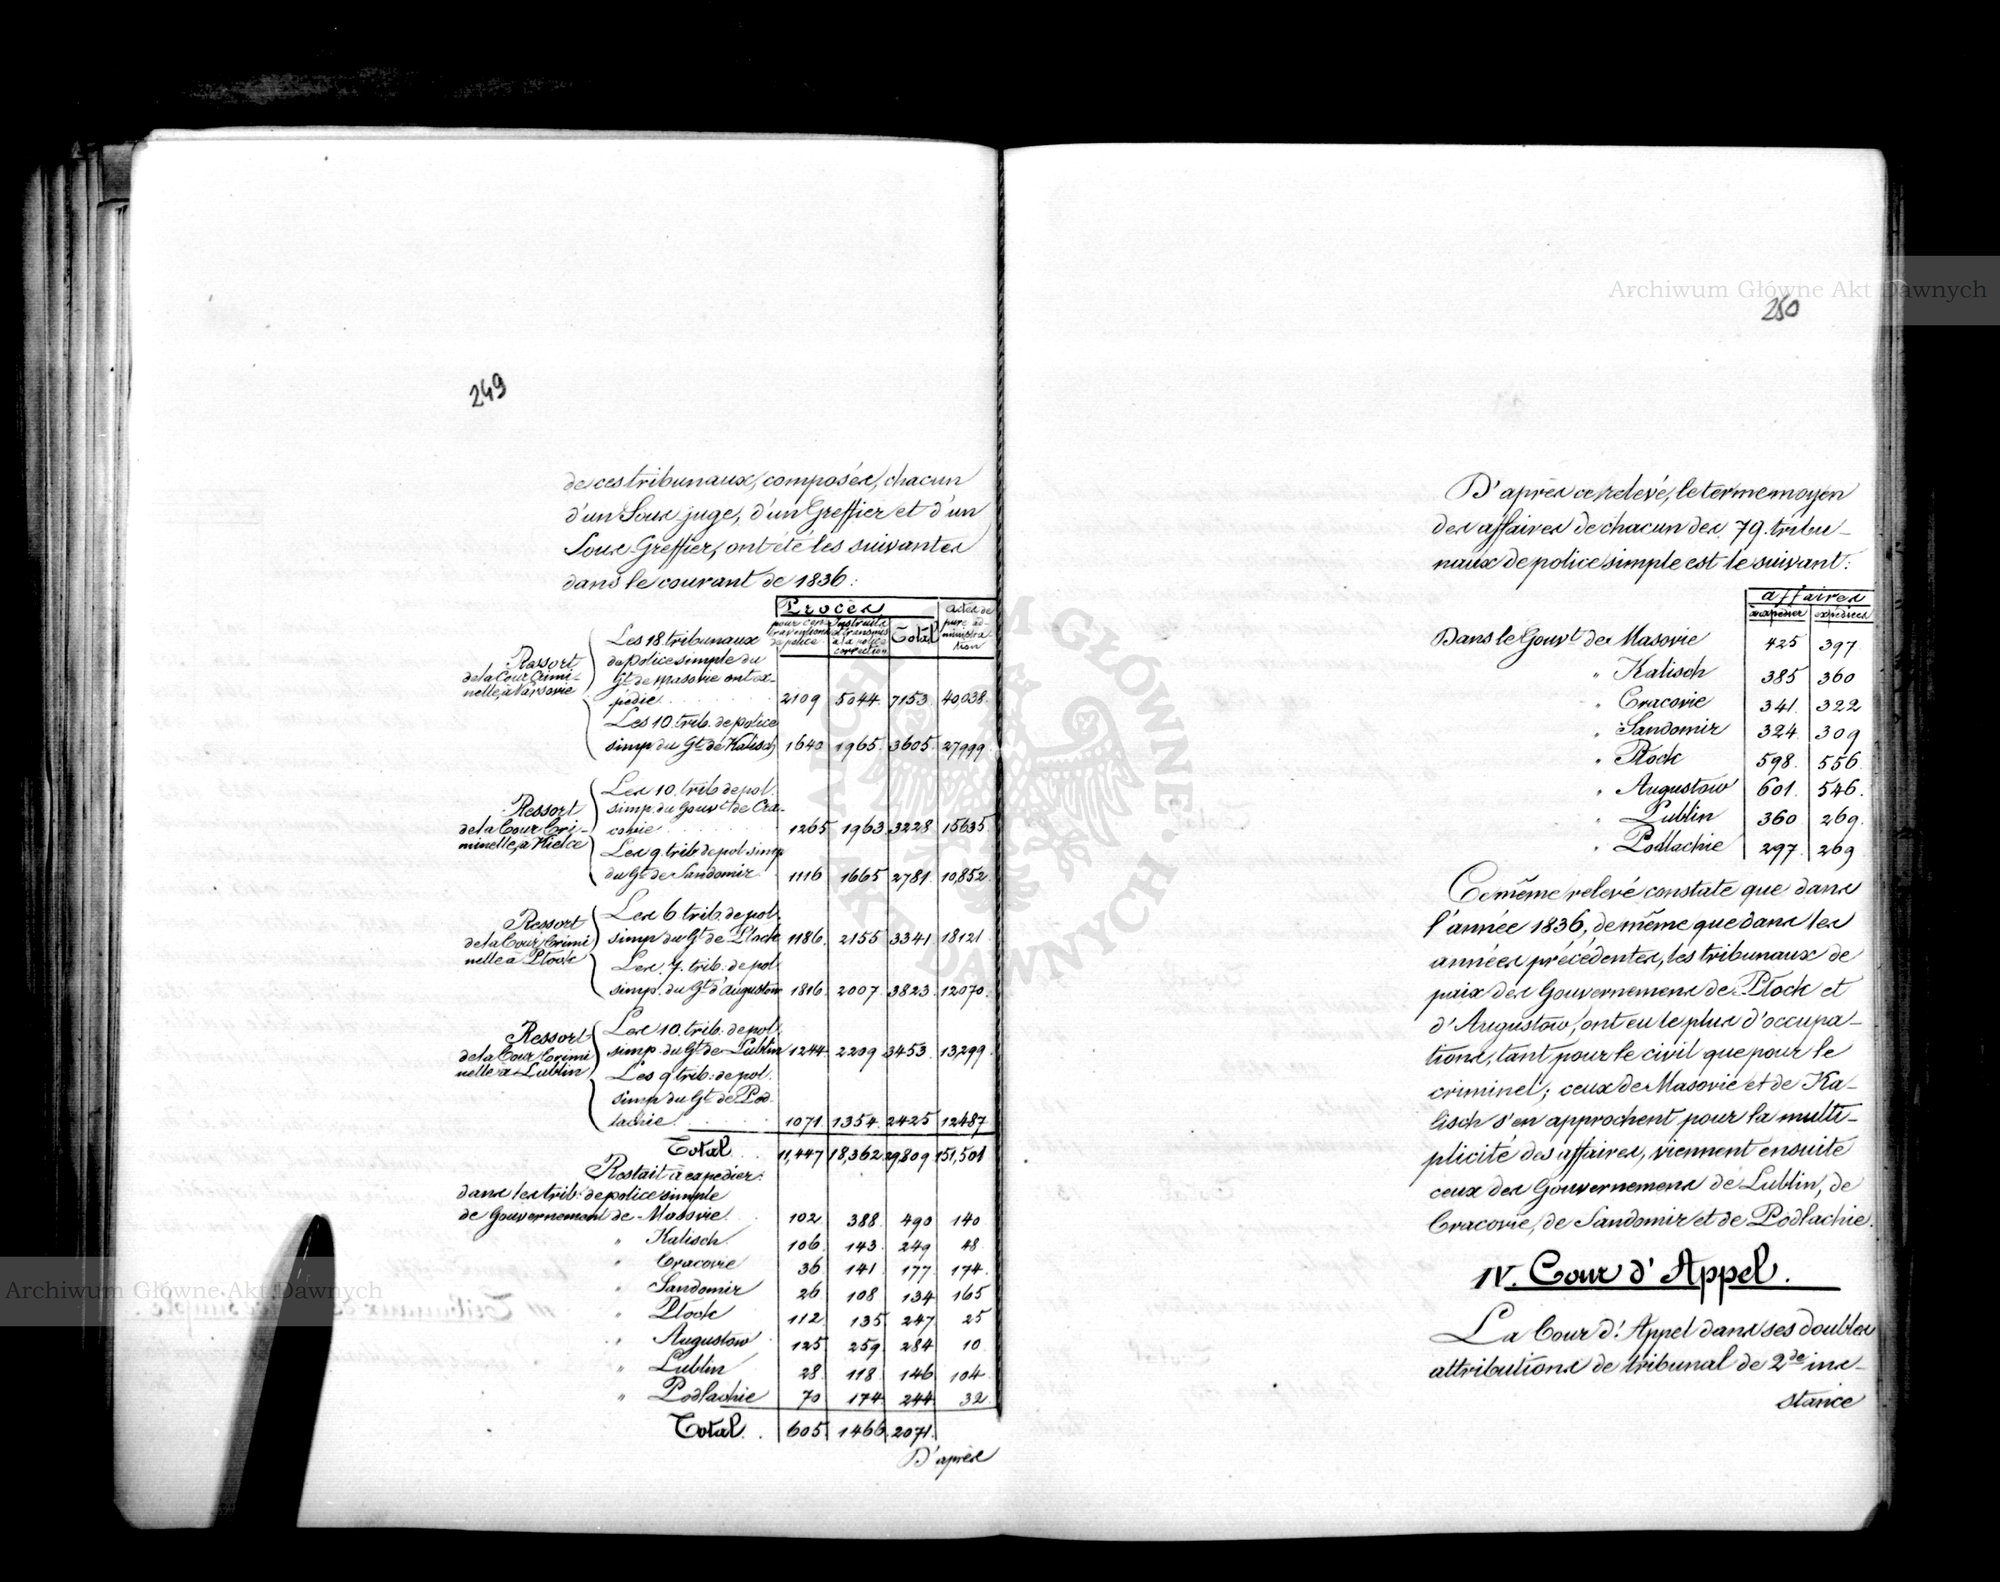 249
de ces tribunaux, composés, chacun
d'un Sous juge, d'un Greffier et d'un
Sous-Greffier, ont été les suivantes
dans le courant de 1836:
Procès Actes de pure administration
pour contraventions de police Instruits et transmis à la police correction Total
Ressort de la Cour Criminelle, à Varsovie
Les 18 tribunaux
de police simple du
Gt de Masovie ont ex-
pédié 2109 5044 7153 40,038
Les 10. trib. de police
simp. du Gt de Kalisch 1640 1965 3605 27999
Ressort
de la Cour Cri-
minelle, à Kielce
Les 10. trib de pol.
simp. du Gouvt de Cra-
covie 1265 1963 3228 15635
Les 9. trib de pol simp
du Gt de Sandomir 1116 1665 2781 10,852
Ressort
de la Cour Crimi
nelle à Plock
Les 6 trib. de pol.
simp du Gt de Plock 1186 2155 3341 18121
Les 7. trib: de pol.
simp. du Gt d'Augustow 1816 2007 3823 12070
Ressort
de la Cour Crimi
nelle à Lublin
Les 10. trib: de pol.
simp. du Gt de Lublin 1244 2209 3453 13,299
Les 9 trib: de pol.
simp du Gt de Pod-
lachie 1071 1354 2425 12487
Total 11,447 18,362 29,809 151,501
Restait à expédier:
dans les trib: de police simple
de Gouvernement de Masovie 102 388 490 140
" Kalisch 106 143 249 48
" Cracovie 36 141 177 174
" Sandomir 26 108 134 165
" Plock 112 135 247 25
" Augustow 125 259 284 10
" Lublin 28 118 146 104
" Podlachie 70 174 244 32
Total. 605 1466 2071
D'après
250
D'après ce relevé, le terme moyen
des affaires de chacun des 79. tribu-
naux de police simple est le suivant:
affaires
à expédier expédiées
Dans le Gouvt de Masovie 425 397
" Kalisch 385 360
" Cracovie 341 322
" Sandomir 324 309
" Plock 598 556
" Augustow 601 546
" Lublin 360 269
" Podlachie 297 269
Ce même relevé constate que dans
l'année 1836, de même que dans les
années précédentes, les tribunaux de
paix des Gouvernemens de Plock et
d'Augustow, ont eu le plus d'occupa-
tions, tant pour le civil que pour le
criminel; ceux de Masovie et de Ka-
lisch s'en approchent pour la multi-
plicité des affaires, viennent ensuite
ceux des Gouvernemens de Lublin, de
Cracovie, de Sandomir et de Podlachie.
IV. Cour d'Appel.
La Cour d'Appel dans ses doubles
attributions de tribunal de 2de ins-
stance
Archiwum Główne Akt Dawnych
Archiwum Główne Akt Dawnych
ARCHIWUM GŁÓWNE AKT DAWNYCH